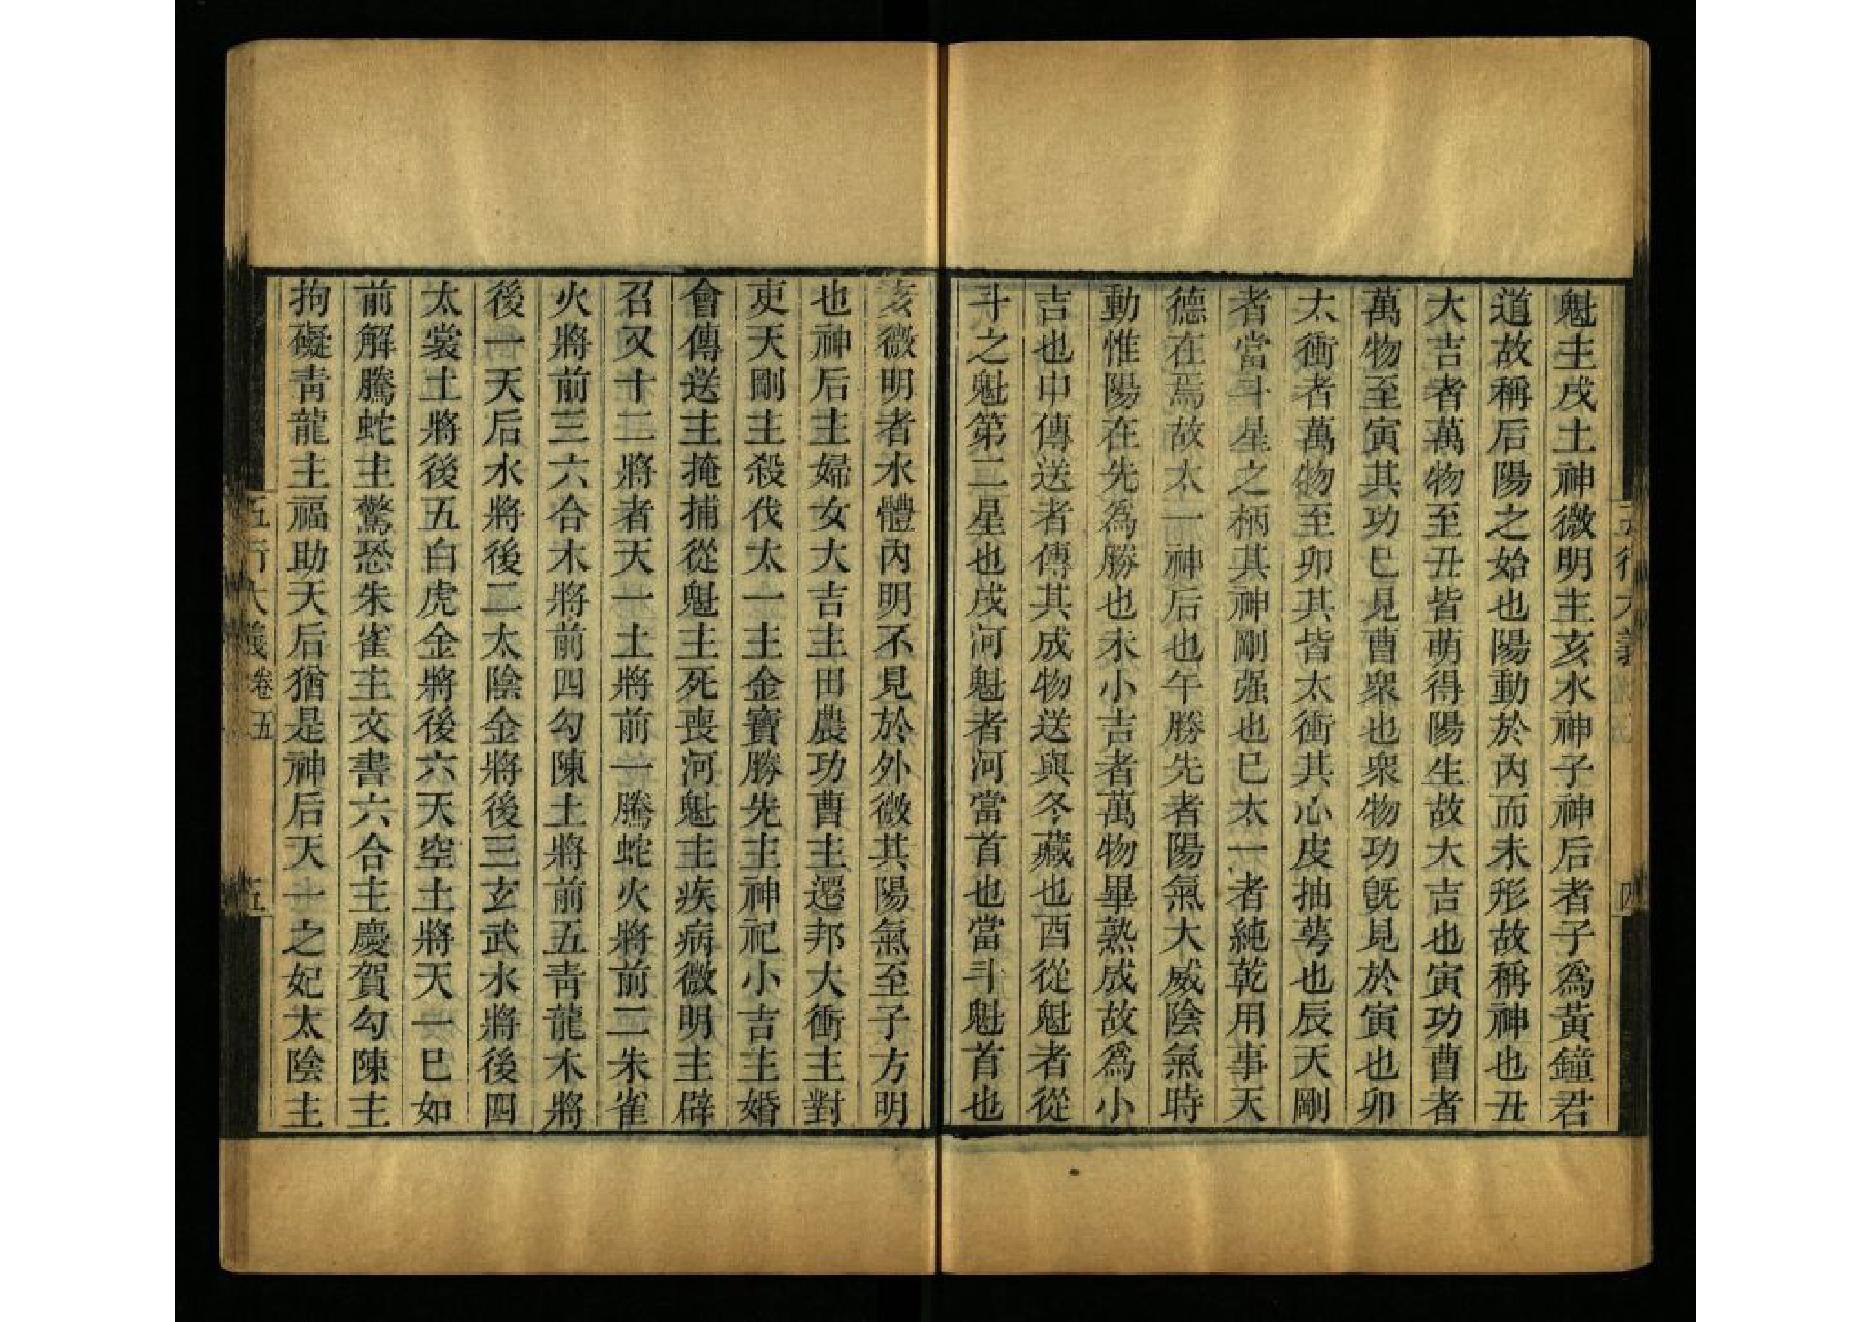 魁主戌土神微明主亥水神子神后者子爲黃鐘君
道故稱后陽之始也陽動於內而未形故稱神也丑
大吉者萬物至丑皆萌得陽生故大吉也寅功曹者
萬物至寅其功已見曹衆也衆物功旣見於寅也卯
太衝者萬物至卯其皆太衝其心皮抽萼也辰天剛
者當斗星之柄其神剛强也巳太一者純乾用事天
德在焉故太一神后也午勝先者陽氣大威陰氣時
動惟陽在先爲勝也未小吉者萬物畢熟成故爲小
吉也申傳送者傳其成物送與冬藏也酉從魁者從
斗之魁第二星也戌河魁者河當首也當斗魁首也
亥微明者水體內明不見於外微其陽氣至子方明
也神后主婦女大吉主田農功曹主遷邦大衝主對
吏天剛主殺伐太一主金寶勝先主神祀小吉主婚
會傳送主掩捕從魁主死喪河魁主疾病微明主辟
召又十二將者天一土將前一騰蛇火將前二朱雀
火將前三六合木將前四勾陳土將前五青龍木將
後一天后水將後二太陰金將後三玄武水將後四
太裳土將後五白虎金將後六天空土將天一巳如
前解騰蛇主驚恐朱雀主文書六合主慶賀勾陳主
拘礙青龍主福助天后猶是神后天一之妃太陰主
五行大義卷五
五